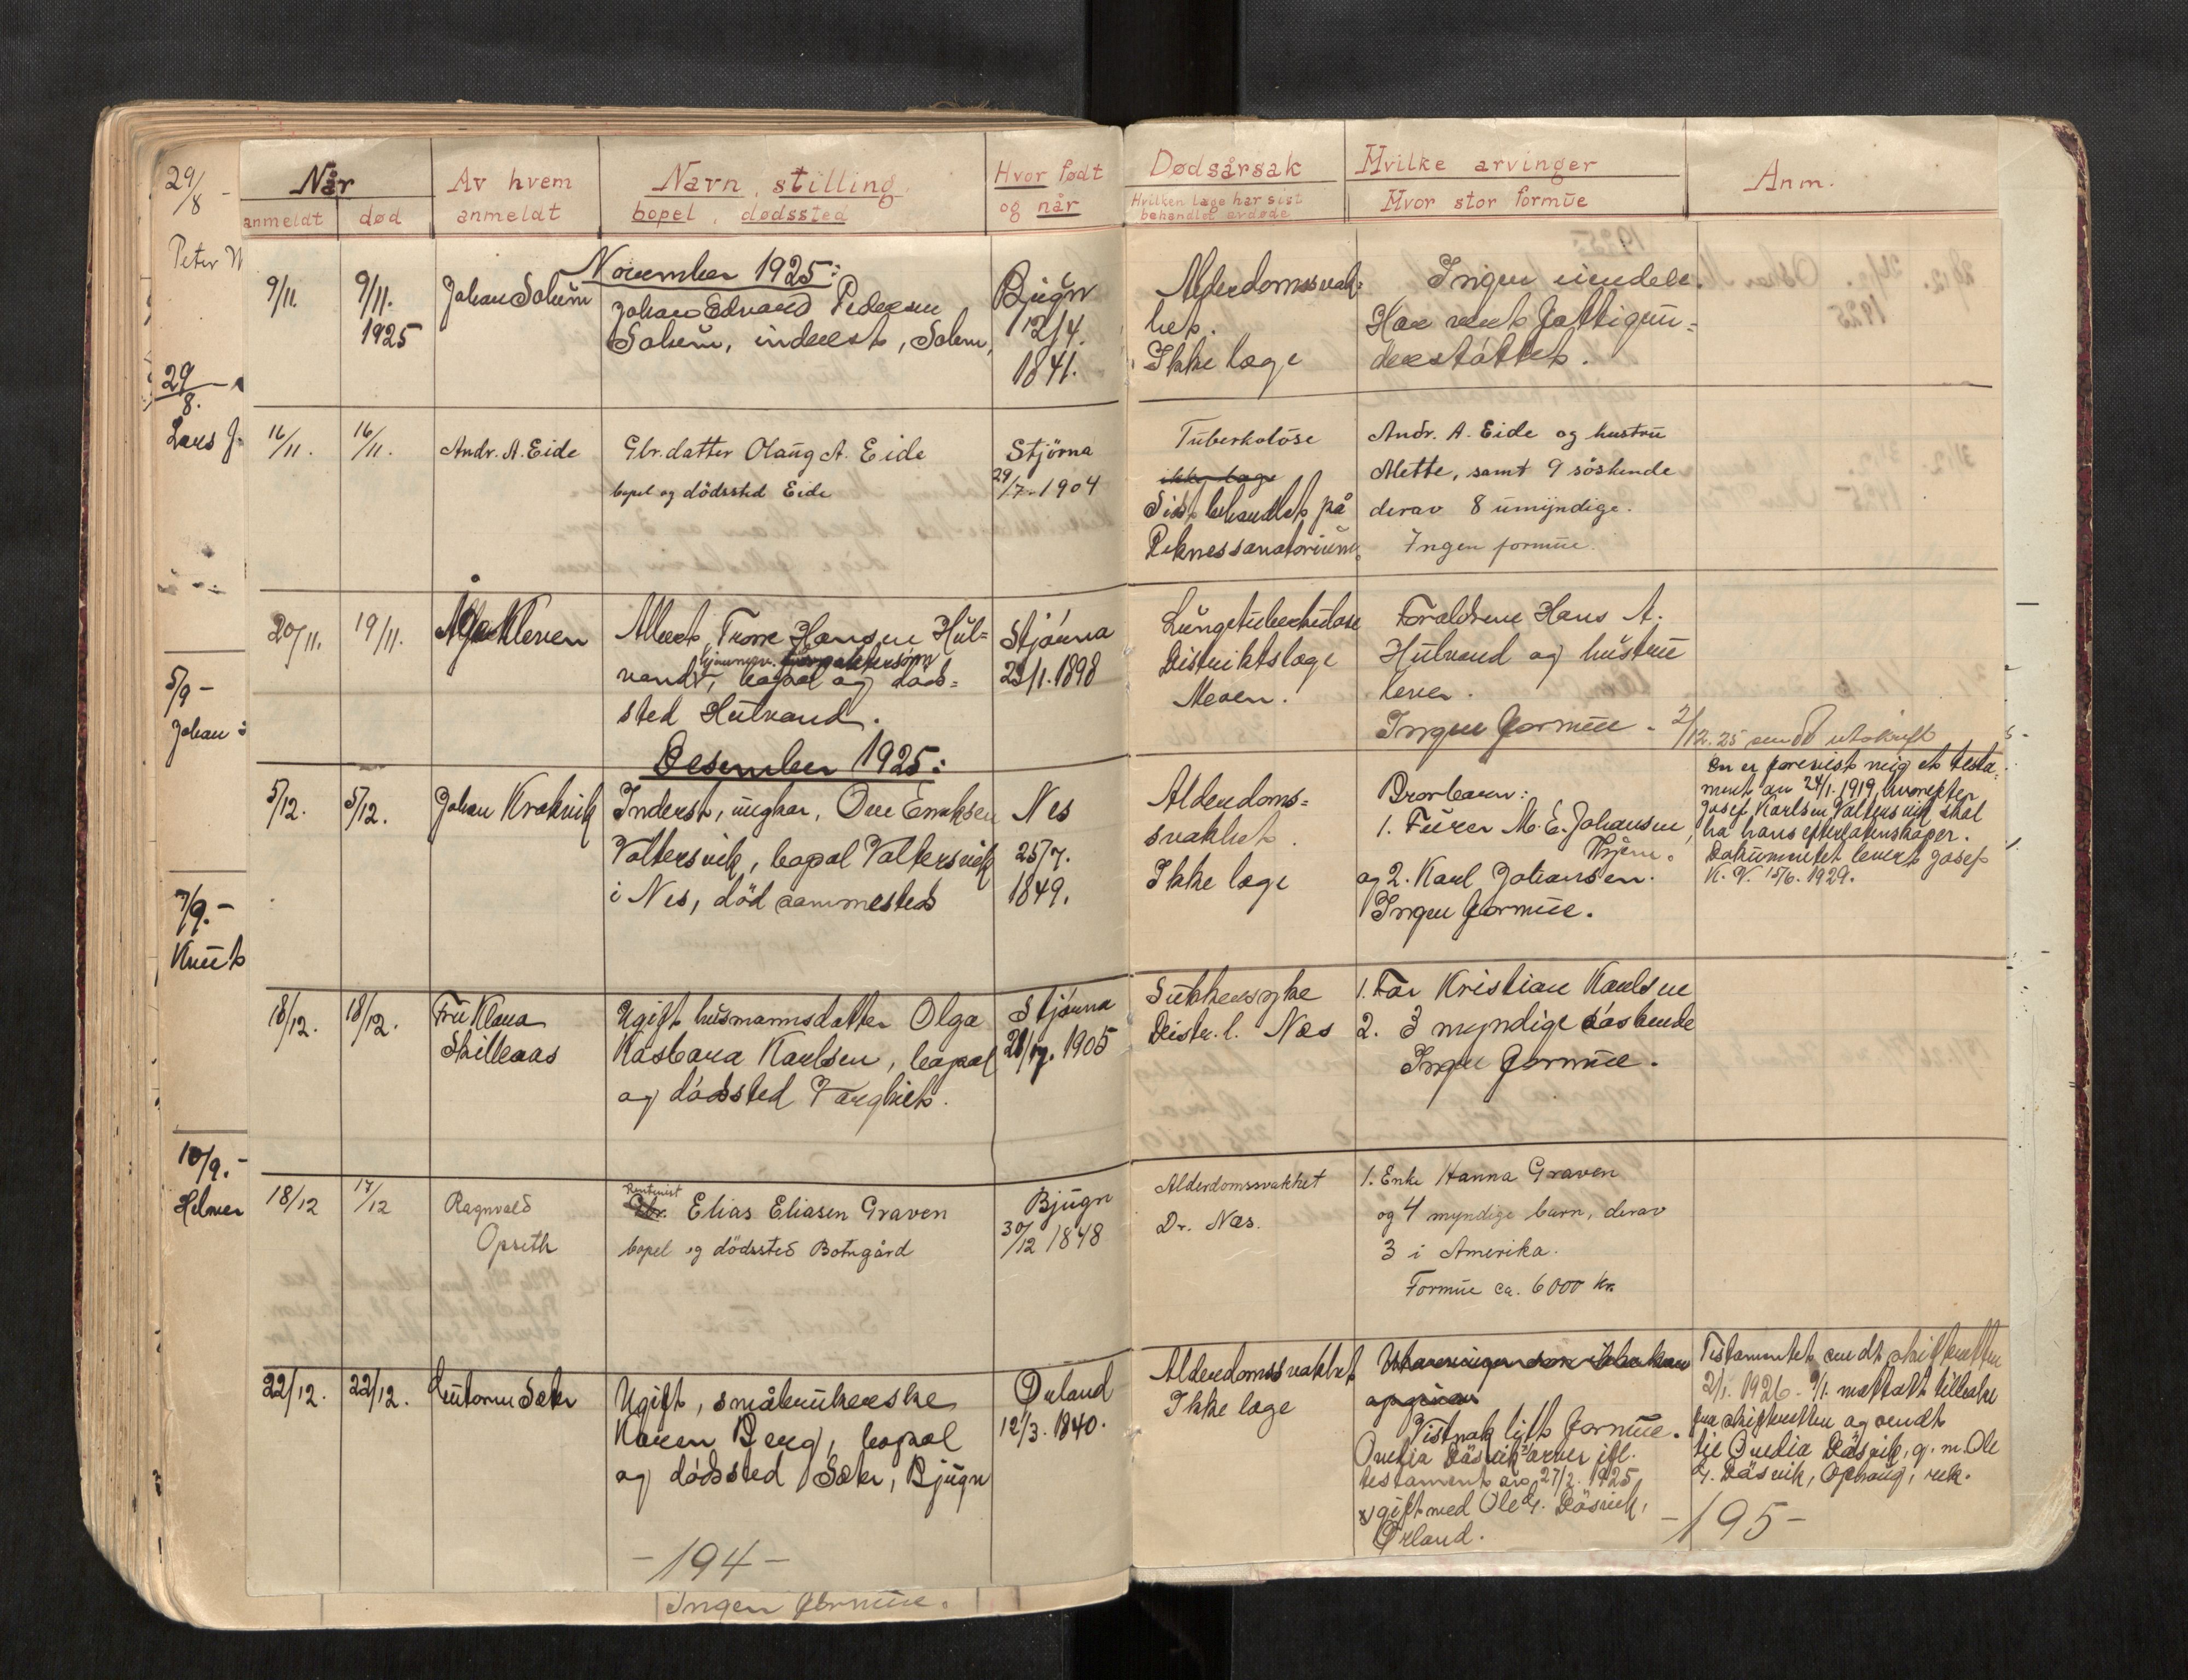 29/8 -
Peter
29/8. -
Lars J.
5/9 -
Johan
7/9. -
Knut
10/9. -
Helmer
Når
anmeldt død
Av hvem
anmeldt
Navn, stilling
bopel, dødssted
Hvor født
og når
Dødsårsak
Hvilken læge har sist
behandlet avdøde
Hvilke arvinger
Hvor stor formue
Anm.
November 1925:
9/11. 9/11. 1925
Johan Solum
Johan Edvard Pedersen
Solum, inderst, Solem,
Bjugn
12/4.
1841.
Alderdomssvak-
het.
Ikke læge
Ingen eiendele.
Har vært fattigun-
derstøttet.
16/11. 16/11.
Andr. A. Eide
Gbr.datter Olaug A. Eide
bopel og dödssted Eide
Stjörna
29/7. 1904
Tuberkolöse
ikke læge
Sist behandlet på
Reknessanatorium.
Andr. A. Eide og hustru
Mette, samt 9 söskende
derav 8 umyndige.
Ingen formue.
20/11. 19/11.
Kleven
Albert Hansen Hul-
vand, bopel og døds-
sted Hulvand.
Stjörna
23/1. 1898
Lungetuberkulose
Distriktslæge
Meoen.
Forældrene Hans A.
Hulvand og hustru
lever.
Ingen formue -
2/12. 25 sendt utskrift
Desember 1925:
5/12. 5/12.
Johan Krakvik
Inderst, ungkar, Ole Eriksen
Valtersvik, bopel Valtersvik
i Nes, död sammesteds
Nes
25/7.
1849.
Alderdoms-
svakhet.
Ikke læge
Brorbarn:
1. Furer M. E. Johansen,
og 2. Karl Johansen.
Ingen formue.
En er forevist mig et testa-
ment av 24/1. 1919, hvorefter
Josef Karlsen Valtersvik skal
ha hans efterlatenskaper.
Dokumentet levert Josef
K. V. 15/6. 1929.
18/12. 18/12.
Fru Klara
Skilleaas
Ugift husmannsdatter Olga
Kasbara Karlsen, bopel
og dödssted Targhiet.
Stjörna
1905
Sukkersyke
Distr. l. Næs
1. Far Kristian Karlsen
2. 3 myndige söskende
Ingen formue.
18/12 17/12
Ragnvald
Opseth
Rentenist
Gbr. Elias Eliasen Graven
bopel og dödssted Botngård
Bjugn
30/12 1848
Alderdomssvakhet
Dr. Næs.
1. Enke Hanna Graven
og 4 myndige barn, derav
3 i Amerika.
Formue ca. 6000 kr.
22/12. 22/12.
Sæter
Ugift, småbrukerske
Karen Berg, bopel
og dödssted Sæter, Bjugn
Ørland
12/3. 1840.
Alderdomssvakhet
Ikke læge
Vistnok litt formue.
Ovedia Däsvik x) arver ifl.
testament av 27/2. 1925
x) gift med Ole G. Däsvik,
Ørland.
Testamentet sendt skifteretten
2/1. 1926 - 9/1. mottatt tilbake
fra skifteretten og sendt
til Ovedia Däsvik, g. m. Ole
G. Däsvik, Ophaug, rek.
- 194 -
- 195 -
Ingen formue.